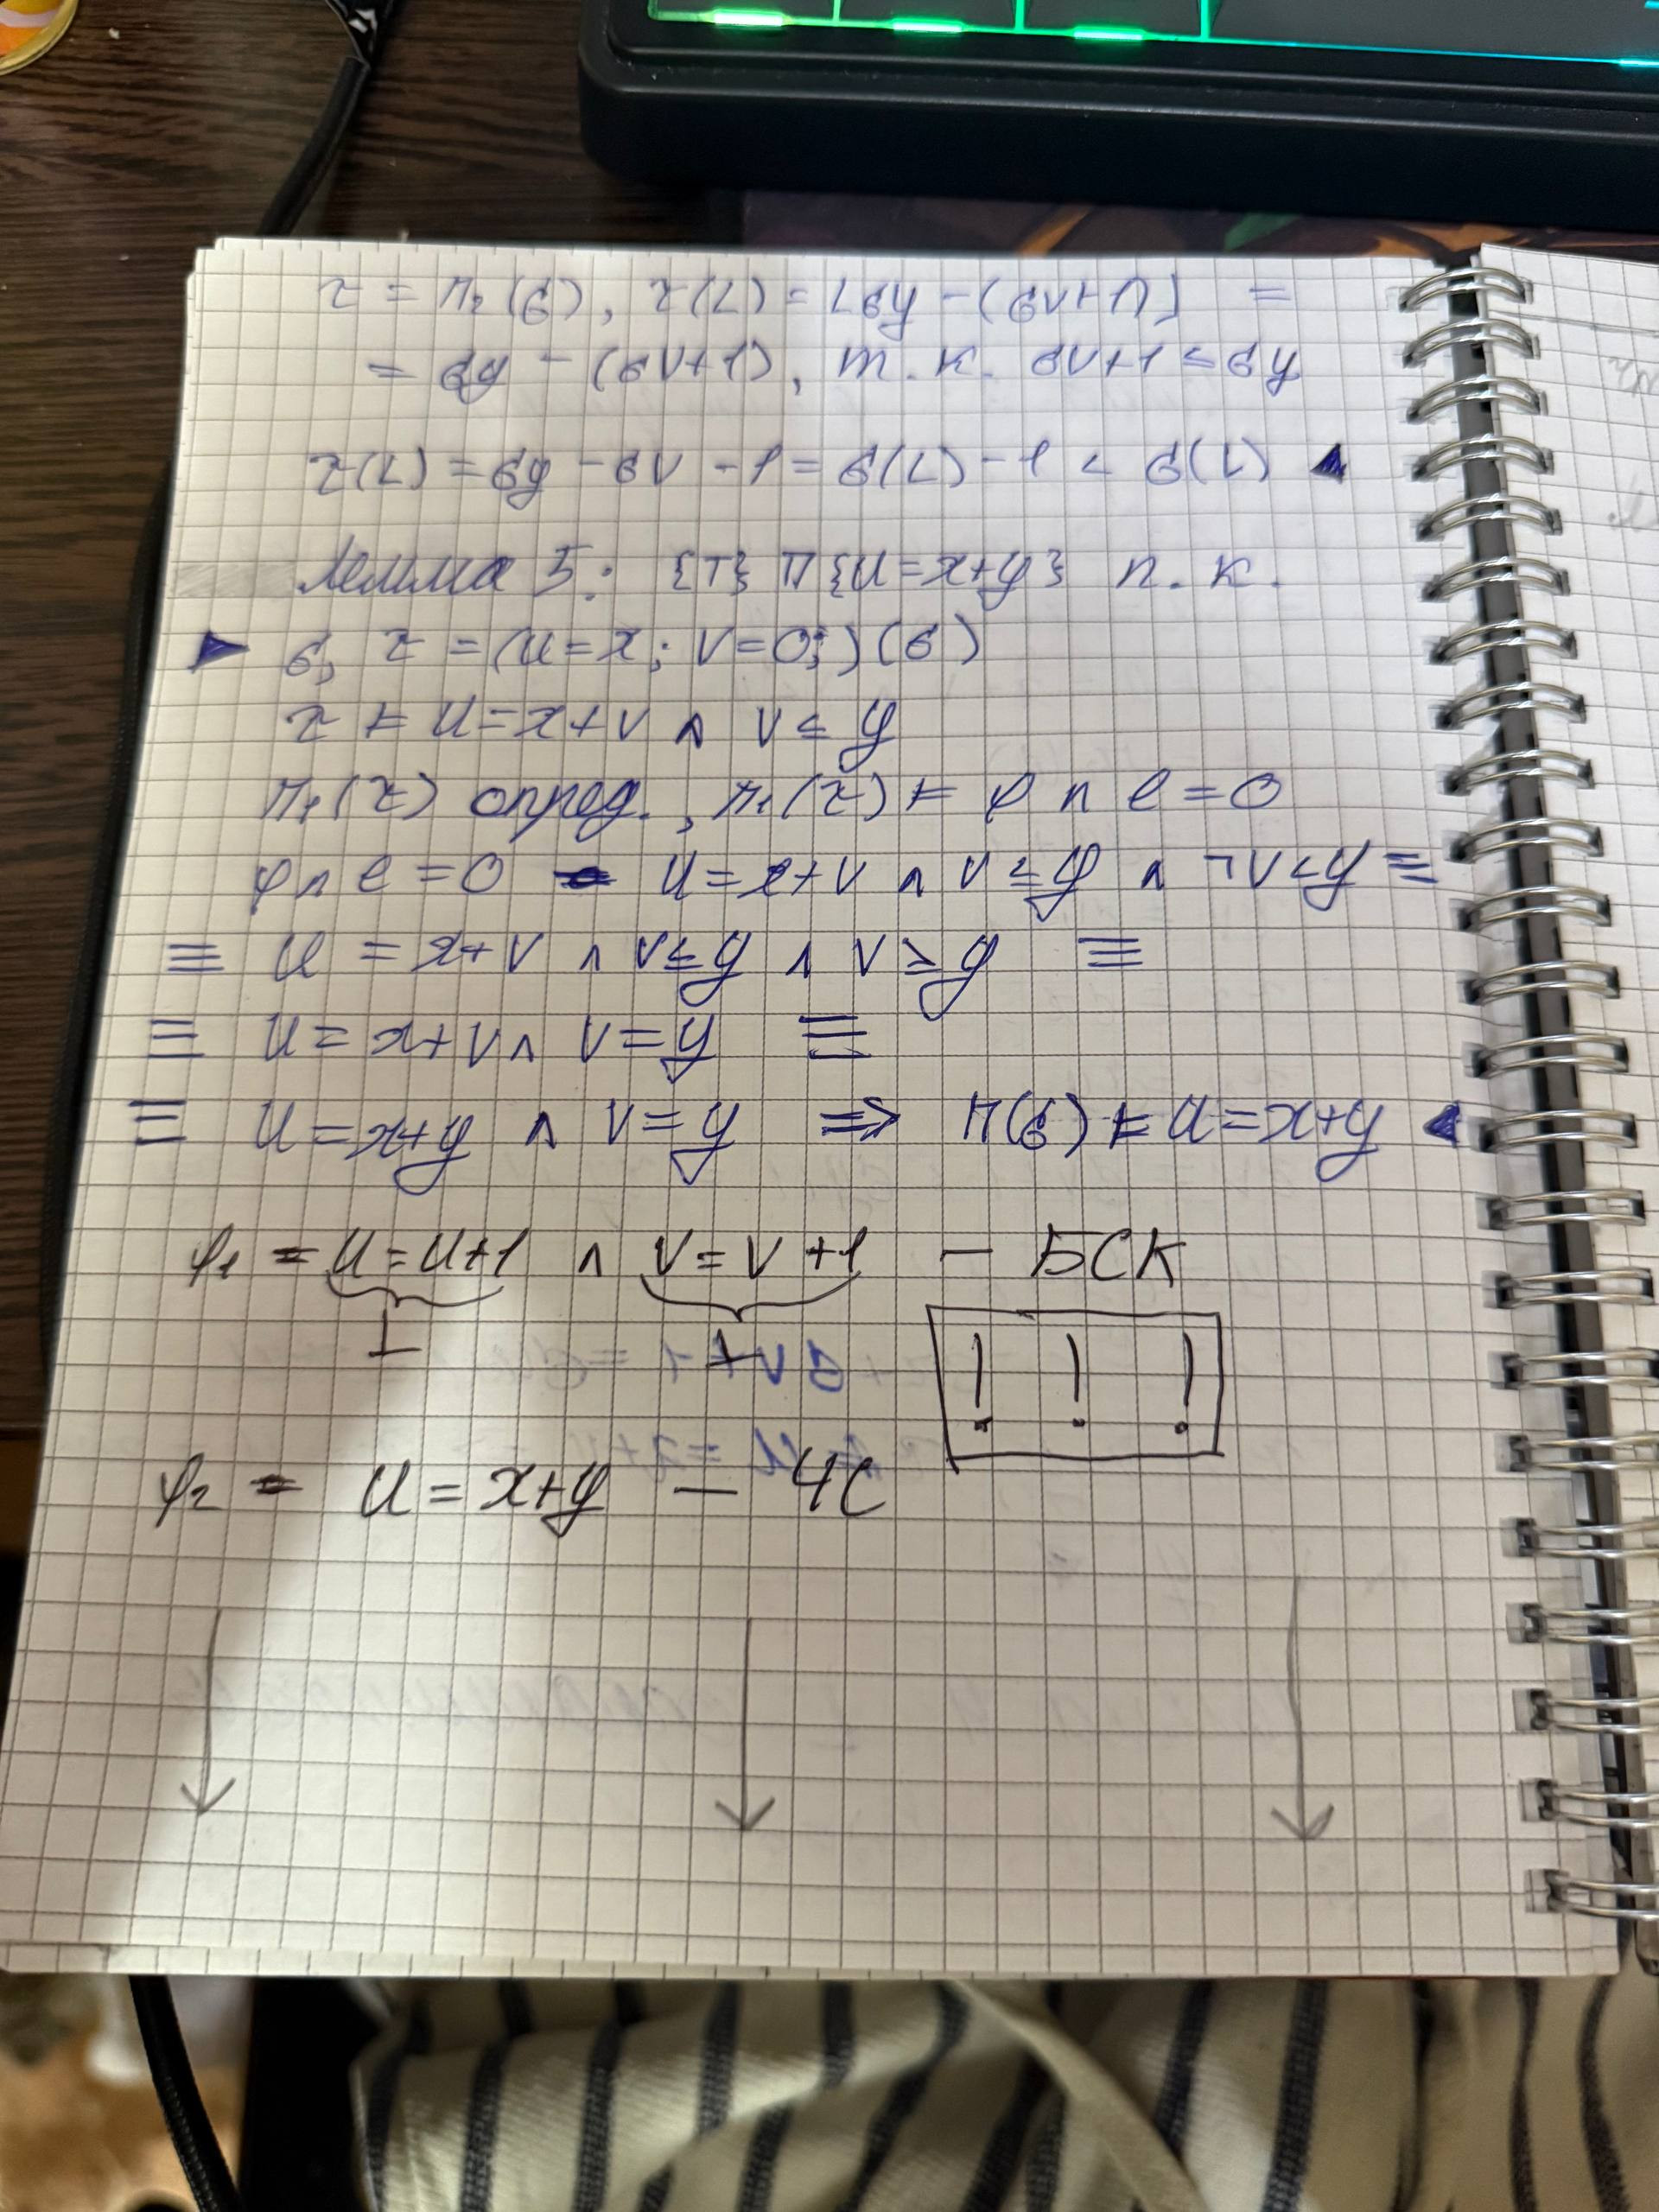 τ = Π₂(σ), τ(L) = ⟦y - (v+1)⟧σ =
= σy - (σv+1), т.к. σv+1 ≤ σy
τ(L) = σy - σv - 1 = σ(L) - 1 < σ(L) ◀
Лемма 5: {T} П {u=x+y} п.к.
▶ σ, τ = (u=x; v=0;)(σ)
τ ⊨ u=x+v ∧ v≤y
Π₁(τ) опред., Π₁(τ) ⊨ φ ∧ e=0
φ ∧ e=0 = u=x+v ∧ v≤y ∧ ¬v<y ≡
≡ u=x+v ∧ v≤y ∧ v≥y ≡
≡ u=x+v ∧ v=y ≡
≡ u=x+y ∧ v=y ⇒ Π(σ) ⊨ u=x+y ◀
φ₁ = u=u+1 ∧ v=v+1 — БСК
⊥ ⊥ ! ! !
φ₂ = u=x+y — ЧС